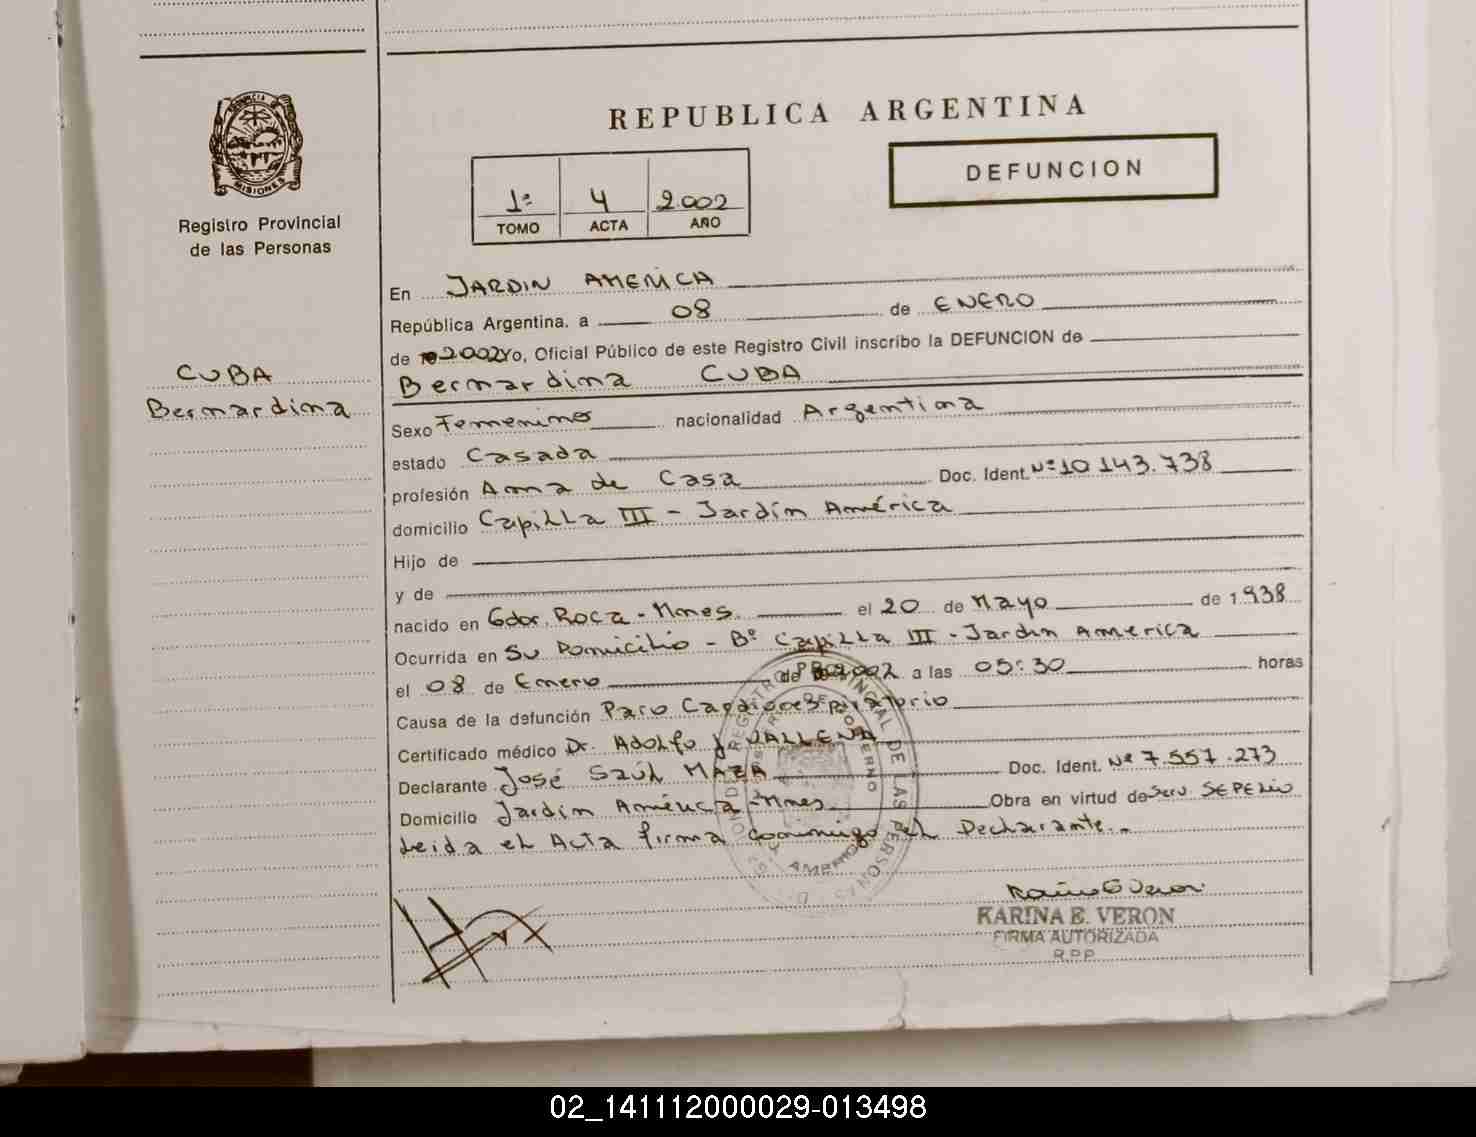 PROVINCIA DE
MISIONES
Registro Provincial
de las Personas
CUBA
Bernardina
REPUBLICA ARGENTINA
DEFUNCION
1º 4 2.002
TOMO ACTA AÑO
En JARDIN AMERICA
República Argentina, a 08 de ENERO
de 2002 Yo, Oficial Público de este Registro Civil inscribo la DEFUNCION de
Bernardina CUBA
Sexo Femenino nacionalidad Argentina
estado Casada
profesión Ama de Casa Doc. Ident. Nº 10.143.738
domicilio Capilla III - Jardín América
Hijo de
y de
nacido en Gdor. Roca - Mnes. el 20 de Mayo de 1.938
Ocurrida en Su Domicilio - Bº Capilla III - Jardín America
el 08 de Enero de 2002 a las 05:30 horas
Causa de la defunción Paro Cardiorespiratorio
Certificado médico Dr. Adolfo J. VALLENA
Declarante José Saúl MAZA Doc. Ident. Nº 7.557.273
Domicilio Jardín América - Mnes Obra en virtud de Serv. SEPELIO
Leida el Acta firma conmigo el Declarante..
KARINA E. VERON
FIRMA AUTORIZADA
R.P.P.
02_141112000029-013498